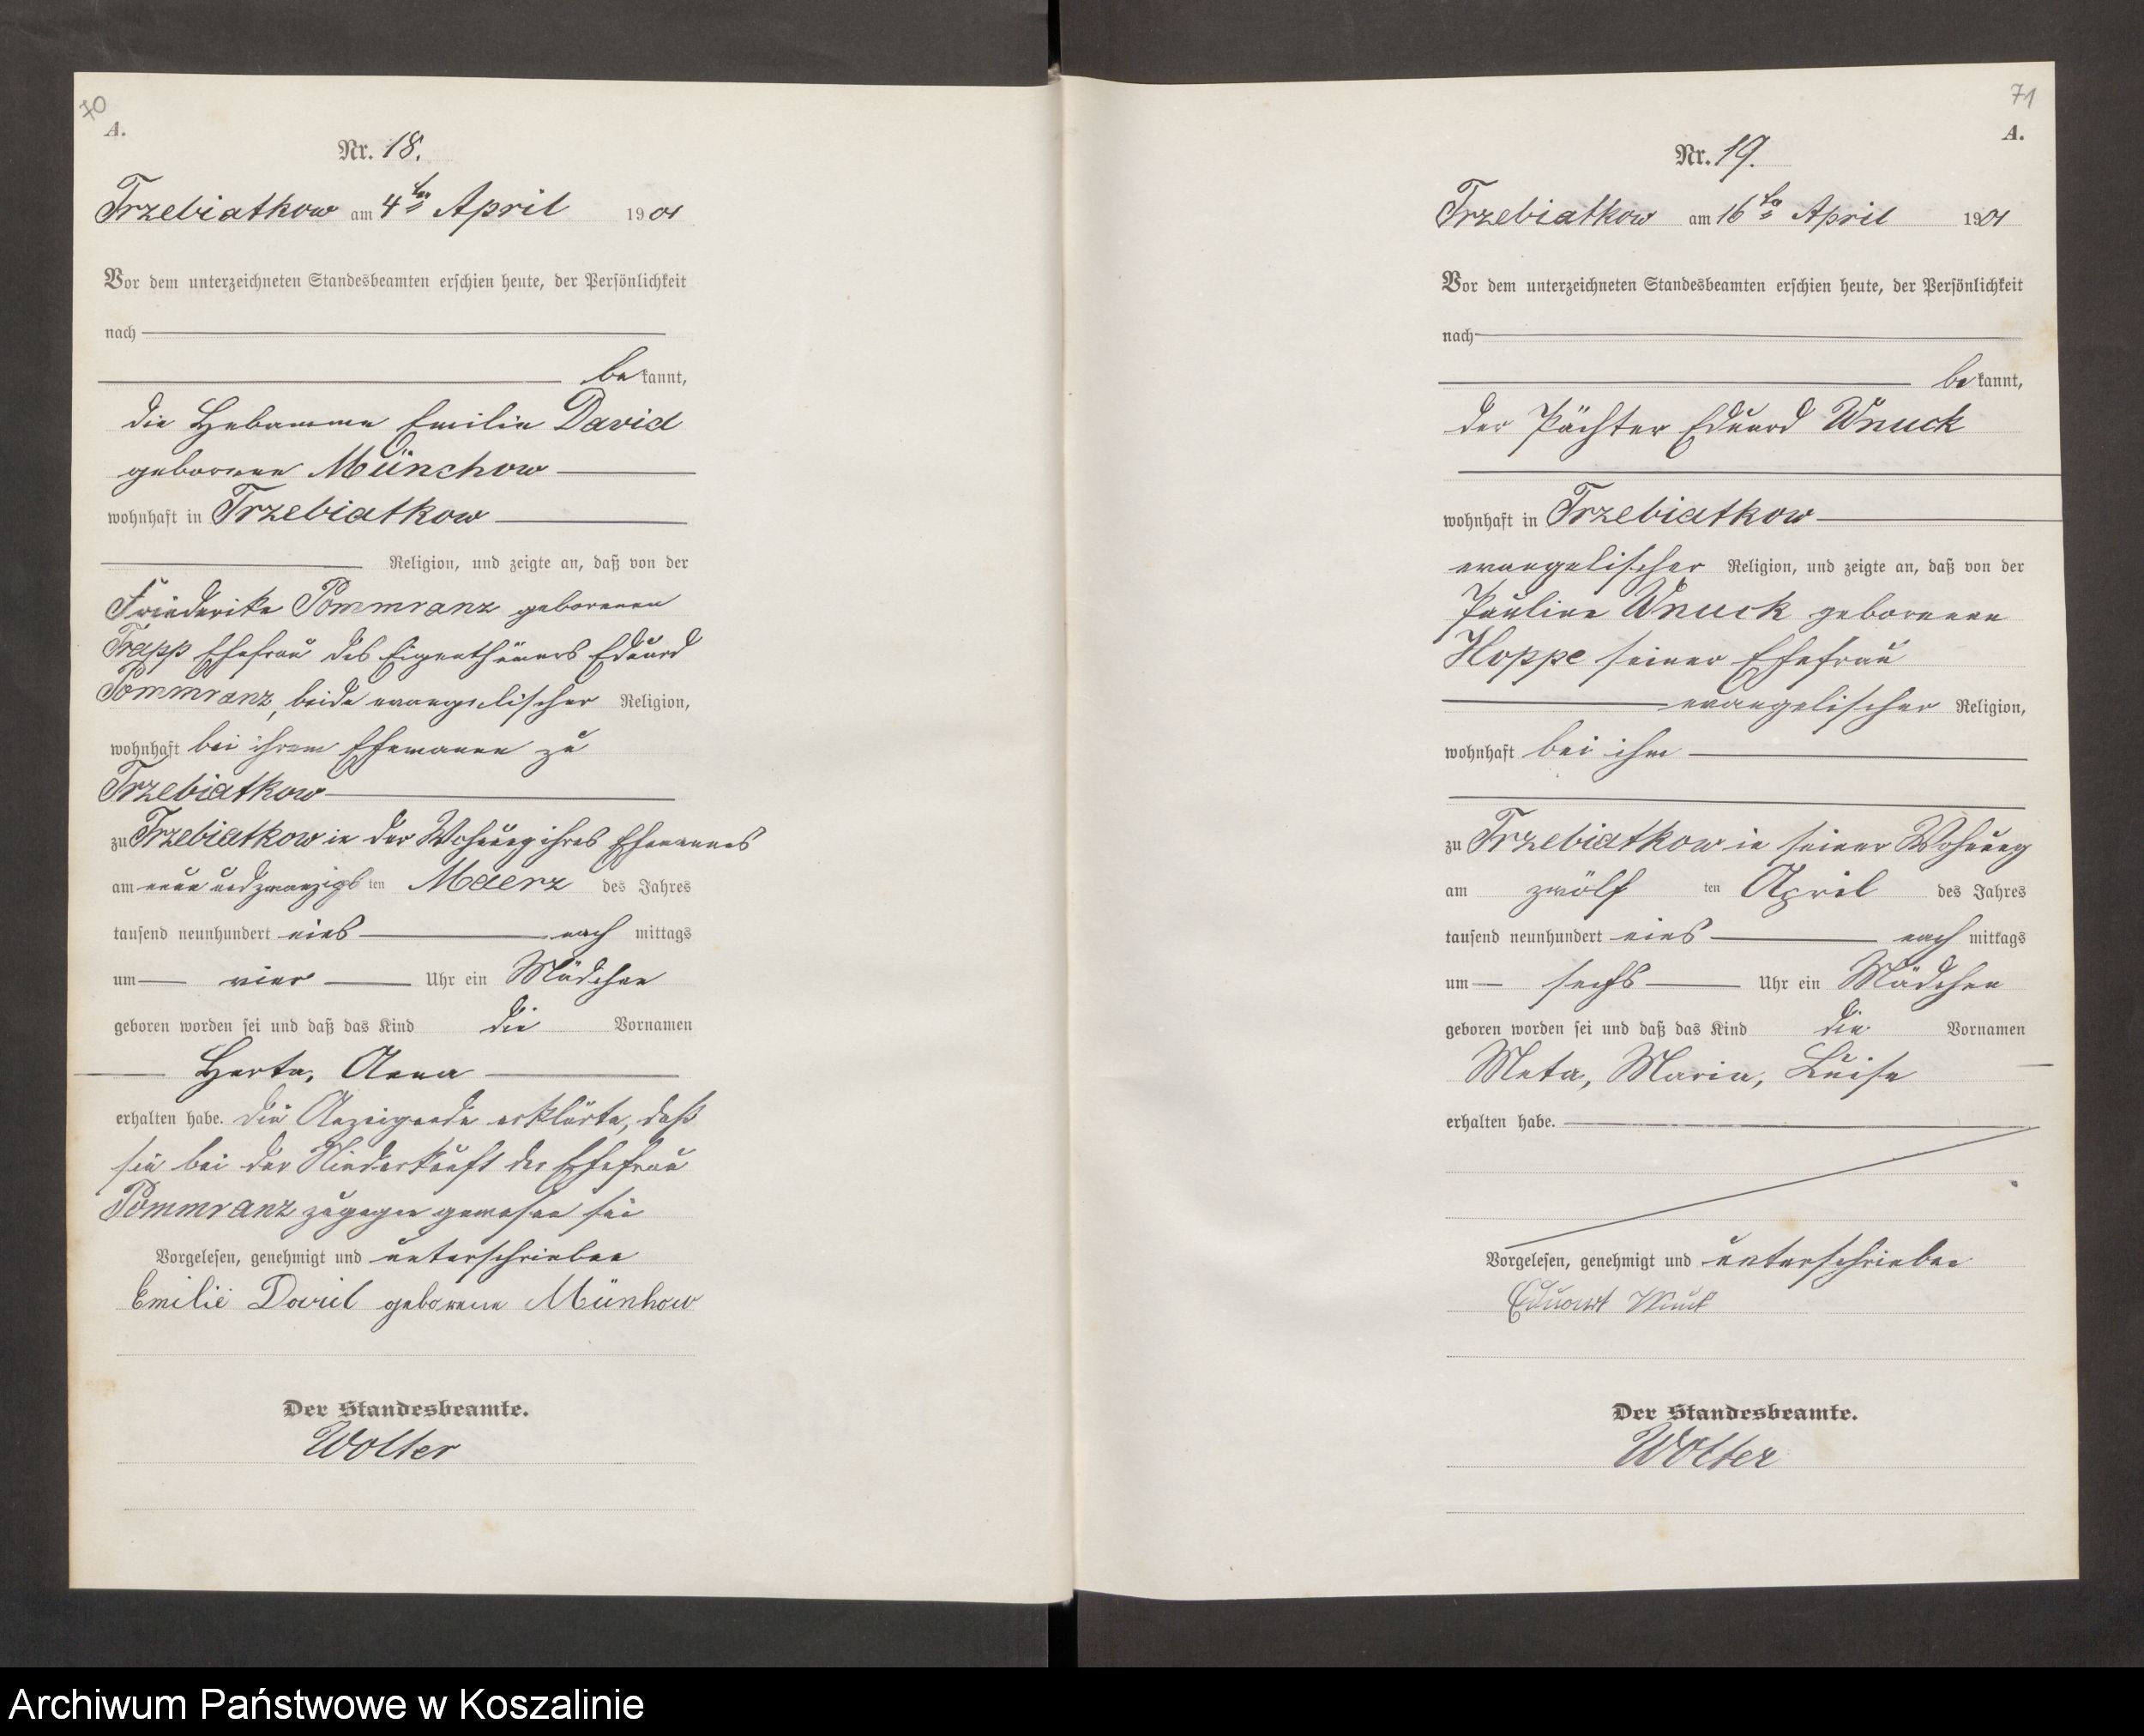 70
A.
Nr. 18.
Trzebiatkow am 4ten April 1901
Vor dem unterzeichneten Standesbeamten erschien heute, der Persönlichkeit
nach
bekannt,
die Hebamme Emilie David
geborene Münchow
wohnhaft in Trzebiatkow
Religion, und zeigte an, daß von der
Friederike Pommranz geborenen
Trapp Ehefrau des Eigenthümers Eduard
Pommranz, beide evangelischer Religion,
wohnhaft bei ihrem Ehemanne zu
Trzebiatkow
zu Trzebiatkow in der Wohnung ihres Ehemannes
am neun und zwanzigsten Maerz des Jahres
tausend neunhundert eins nachmittags
um vier Uhr ein Mädchen
geboren worden sei und daß das Kind die Vornamen
Herta, Anna
erhalten habe. Die Anzeigende erklärte, daß
sie bei der Niederkunft der Ehefrau
Pommranz zugegen gewesen sei
Vorgelesen, genehmigt und unterschrieben
Emilie David geborene Münhow
Der Standesbeamte.
Wolter
71
A.
Nr. 19.
Trzebiatkow am 16ten April 1901
Vor dem unterzeichneten Standesbeamten erschien heute, der Persönlichkeit
nach
bekannt,
der Pächter Eduard Wnuck
wohnhaft in Trzebiatkow
evangelischer Religion, und zeigte an, daß von der
Pauline Wnuck geborenen
Hoppe seiner Ehefrau
evangelischer Religion,
wohnhaft bei ihm
zu Trzebiatkow in seiner Wohnung
am zwölften April des Jahres
tausend neunhundert eins nachmittags
um sechs Uhr ein Mädchen
geboren worden sei und daß das Kind die Vornamen
Meta, Maria, Luise
erhalten habe.
Vorgelesen, genehmigt und unterschrieben
Eduart Wnuk
Der Standesbeamte.
Wolter
Archiwum Państwowe w Koszalinie